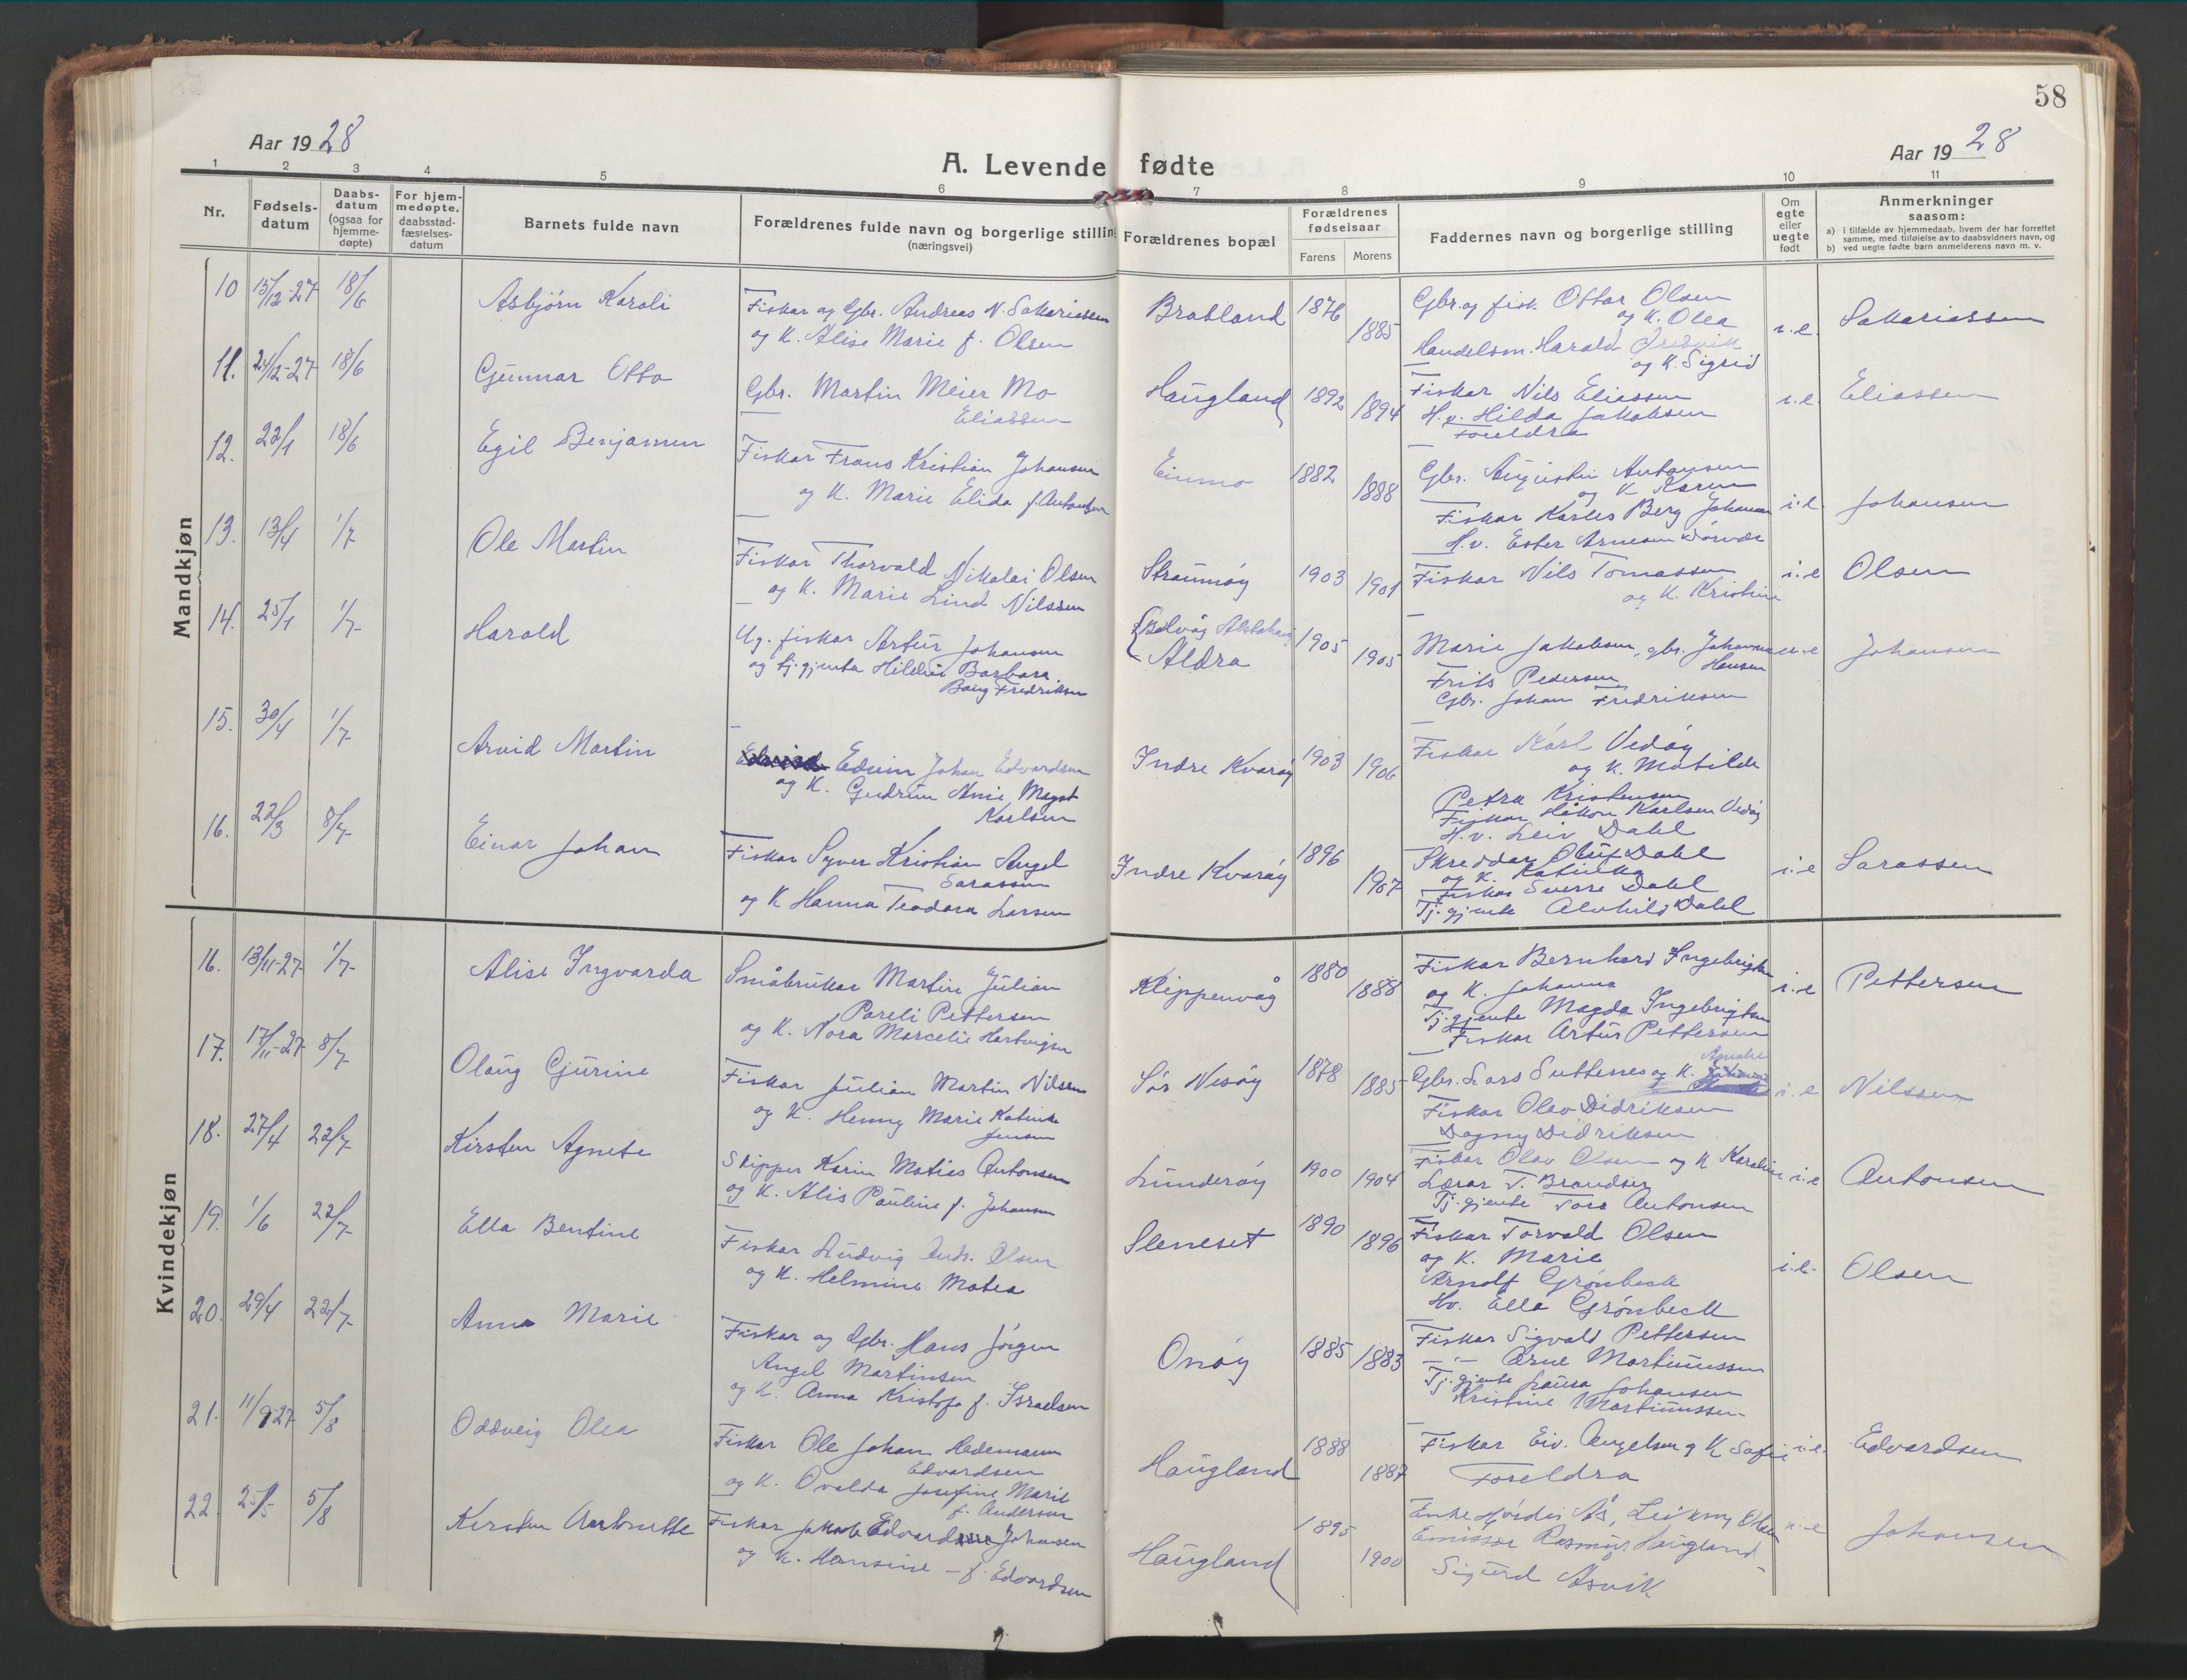 58
Aar 1928
A. Levende fødte
Aar 1928
1 2 3 4 5 6 7 8 9 10 11
Nr.
Fødsels-
datum
Daabs-
datum
(ogsaa for
hjemme-
døpte)
For hjem-
medøpte,
daabsstad-
fæstelses-
datum
Barnets fulde navn
Forældrenes fulde navn og borgerlige stilling
(næringsvei)
Forældrenes bopæl
Forældrenes
fødselsaar
Farens Morens
Faddernes navn og borgerlige stilling
Om
egte
eller
uegte
født
Anmerkninger
saasom:
a) i tilfælde av hjemmedaab, hvem der har forrettet
samme, med tilføielse av to daabsvidners navn, og
b) ved uegte fødte barn anmelderens navn m. v.
Mandkjøn
10 15/12-27 18/6 Asbjörn Karoli
Fiskar og Gbr. Andreas N. Sakariassen
og K. Alise Marie f. Olsen
Bratland 1876 1885
Gbr. og fisk. Ottar Olsen
og K. Olea
Handelsm. Harald
og K. Sigrid
i.e. Sakariassen
11. 24/12-27 18/6 Gunnar Otto
Gbr. Martin Meier Mo
Eliassen
Haugland 1892 1894
Fiskar Nils Eliassen
H.v. Hilda Jakobsen
Foreldra
i.e. Eliassen
12. 22/1 18/6 Egil Benjamin
Fiskar Frans Kristian Johansen
og K. Marie Elida f. Antonsen
Einmo 1882 1888
Gbr. Augustin Antonsen
og K. Karen
Fiskar Karles Berg Johansen
H.v. Ester Arnesen
i.e. Johansen
13. 13/4 1/7 Ole Martin
Fiskar Thorvald Nikolai Olsen
og K. Marie Lind Nilssen
Straumöy 1903 1901
Fiskar Nils Tomassen
og K. Kristine
i.e Olsen
14. 25/1 1/7 Harald
Ug. fiskar Artur Johansen
og tj.gjenta Hildur Barbara
Bang Fredriksen
Aldra 1905 1905
Marie Jakobsen, gbr. Johannes
Hansen
Frits Pedersen
Gbr. Johan Fredriksen
u.e Johansen
15. 30/4 1/7 Arvid Martin
Edvin Johan Edvardsen
og K. Gudrun Anie Magot
Karlsen
Indre Kvaröy 1903 1906
Fiskar Karl Vedöy
og K. Matilde
Petra Kristensen
Fiskar Håkon Karlsen Vedöy
16. 22/3 8/7 Einar Johan
Fiskar Syver Kristian Angel
Sarassen
og K Hanna Teodora Larsen
Indre Kvaröy 1896 1907
H.v. Leiv Dahl
Skreddar Oluf Dahl
og K. Katinka
Fiskar Sverre Dahl
Tj.gjenta Alvhild Dahl
i.e Sarassen
Kvindekjøn
16. 13/11-27 1/7 Alise Ingvarda
Småbrukar Martin Julian
Pareli Pettersen
og K. Nora Marcelie Hartvigsen
Klippenvåg 1880 1888
Fiskar Bernhard Ingebrigtsen
og K. Johanna
Tj.gjenta Magda Ingebrigtsen
Fiskar Artur Pettersen
i.e Pettersen
17. 17/11-27 8/7 Olaug Gjurine
Fiskar Julian Martin Nilsen
og K. Henny Marie Katinka
Jensen
Sör Nesöy 1878 1885
Gbr. Lars Sutternes og K. Amalie
Fiskar Olav Didriksen
Dagny Didriksen
i.e Nilssen
18. 27/4 22/7 Kirsten Agnete
Skipper Karin Matias Antonsen
og K. Alis Pauline f. Johansen
Lunderöy 1900 1904
Fiskar Olav Olsen og K Karoline
Lærar T. Brandser
Tj.gjente Tora Antonsen
i.e Antonsen
19. 1/6 22/7 Ella Bentine
Fiskar Ludvig Andr. Olsen
og K. Helmine Matea
Sleneset 1890 1896
Fiskar Torvald Olsen
og K. Marie
Arnolf Grönbeck
Hv. Ella Grönbeck
i.e. Olsen
20. 29/4 22/7 Anna Marie
Fiskar og Gbr. Hans Jörgen
Angel Martinsen
og K. Anna Kristofa f. Israelsen
Onöy 1885 1883
Fiskar Sigvald Pettersen
— " — Arne Martinussen
Tj.gjente Laura Johansen
Kristine Martinussen
21. 11/9-27 5/8 Oddveig Olea
Fiskar Ole Johan Hedemann
Edvardsen
og K. Ovalda Josefine Marie
f. Andersen
Haugland 1888 1887
Fiskar Eiv. Angelsen og K Sofie
Foreldra
i.e. Edvardsen
22. 25/5 5/8 Kirsten Antonette
Fiskar Jakob Edvard Johansen
og K. Hansine — f. Edvardsen
Haugland 1895 1900
Enke Hjördis Ås, Leikny Olsen
Emissær Rasmus Haugland
Sigurd Åsvik
i.e Johansen